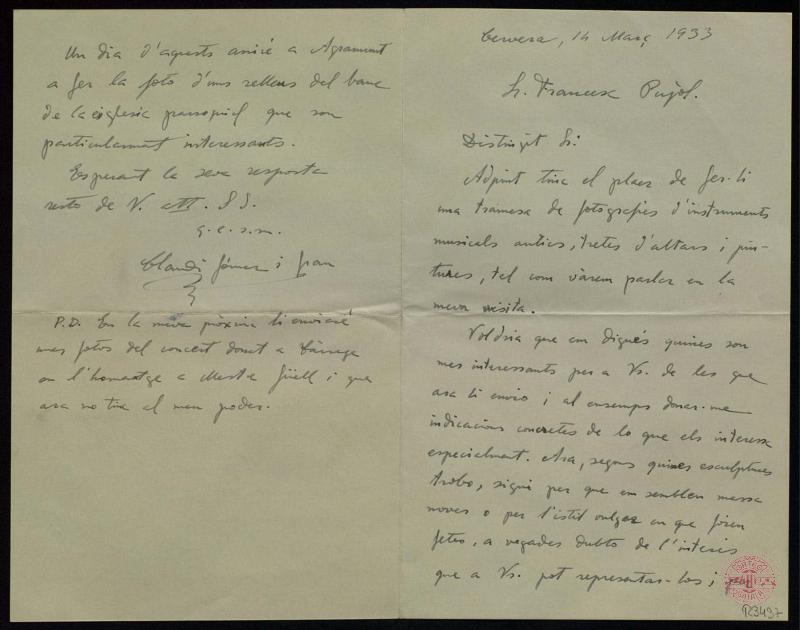 Cervera, 14 Març 1933
Sr. Francesc Pujol.
Distingit Sr:
Adjunt tinc el plaer de fer-li
una tramesa de fotografies d'instruments
musicals antics, tretes d'altars i pin-
tures, tel com vàrem parlar en la
meva visita.
Voldria que em digués quines son
mes interessants per a Vs. de les que
ara li envio i al ensemps donar-me
indicacions concretes de lo que els interessa
especialment. Ara, segons quines esculptures
trobo, sigui per que em semblen massa
noves o per l'istil vulgar en que foren
fetes, a vegades dubto de l'interès
que a Vs. pot representar-los i
ORFEÓ CATALÀ
R3437
Un dia d'aquests aniré a Agramunt
a fer la foto d'uns relleus del banc
de la església parroquial que son
particularment interessants.
Esperant la seva resposta
resto de V. att. S.S.
q.e.s.m.
Claudi Gómez i Grau
P.D. En la meva pròxima li enviaré
unes fotos del concert donat a Tàrrega
en l'homenatge a Mestre Güell i que
ara no tinc al meu poder.